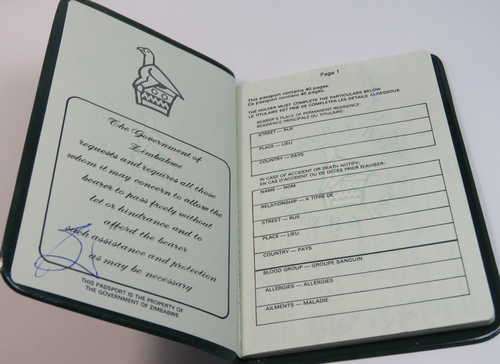 The Government of
Zimbabwe
requests and requires all those
whom it may concern to allow the
bearer to pass freely without
let or hindrance and to
afford the bearer
such assistance and protection
as may be necessary
THIS PASSPORT IS THE PROPERTY OF
THE GOVERNMENT OF ZIMBABWE
Page 1
This passport contains 40 pages.
Ce passeport contient 40 pages.
THE HOLDER MUST COMPLETE THE PARTICULARS BELOW
LE TITULAIRE EST PRIE DE COMPLETER LES DETAILS
BEARER'S PLACE OF PERMANENT RESIDENCE:
RESIDENCE PRINCIPALE DU TITULAIRE:
STREET — RUE
PLACE — LIEU
COUNTRY — PAYS
IN CASE OF ACCIDENT OR DEATH NOTIFY:
EN CAS D'ACCIDENT OU DE DECES PRIER D'AVISER:
NAME — NOM
RELATIONSHIP — A TITRE DE
STREET — RUE
PLACE — LIEU
COUNTRY — PAYS
BLOOD GROUP — GROUPE SANGUIN
ALLERGIES — ALLERGIES
AILMENTS — MALADIE